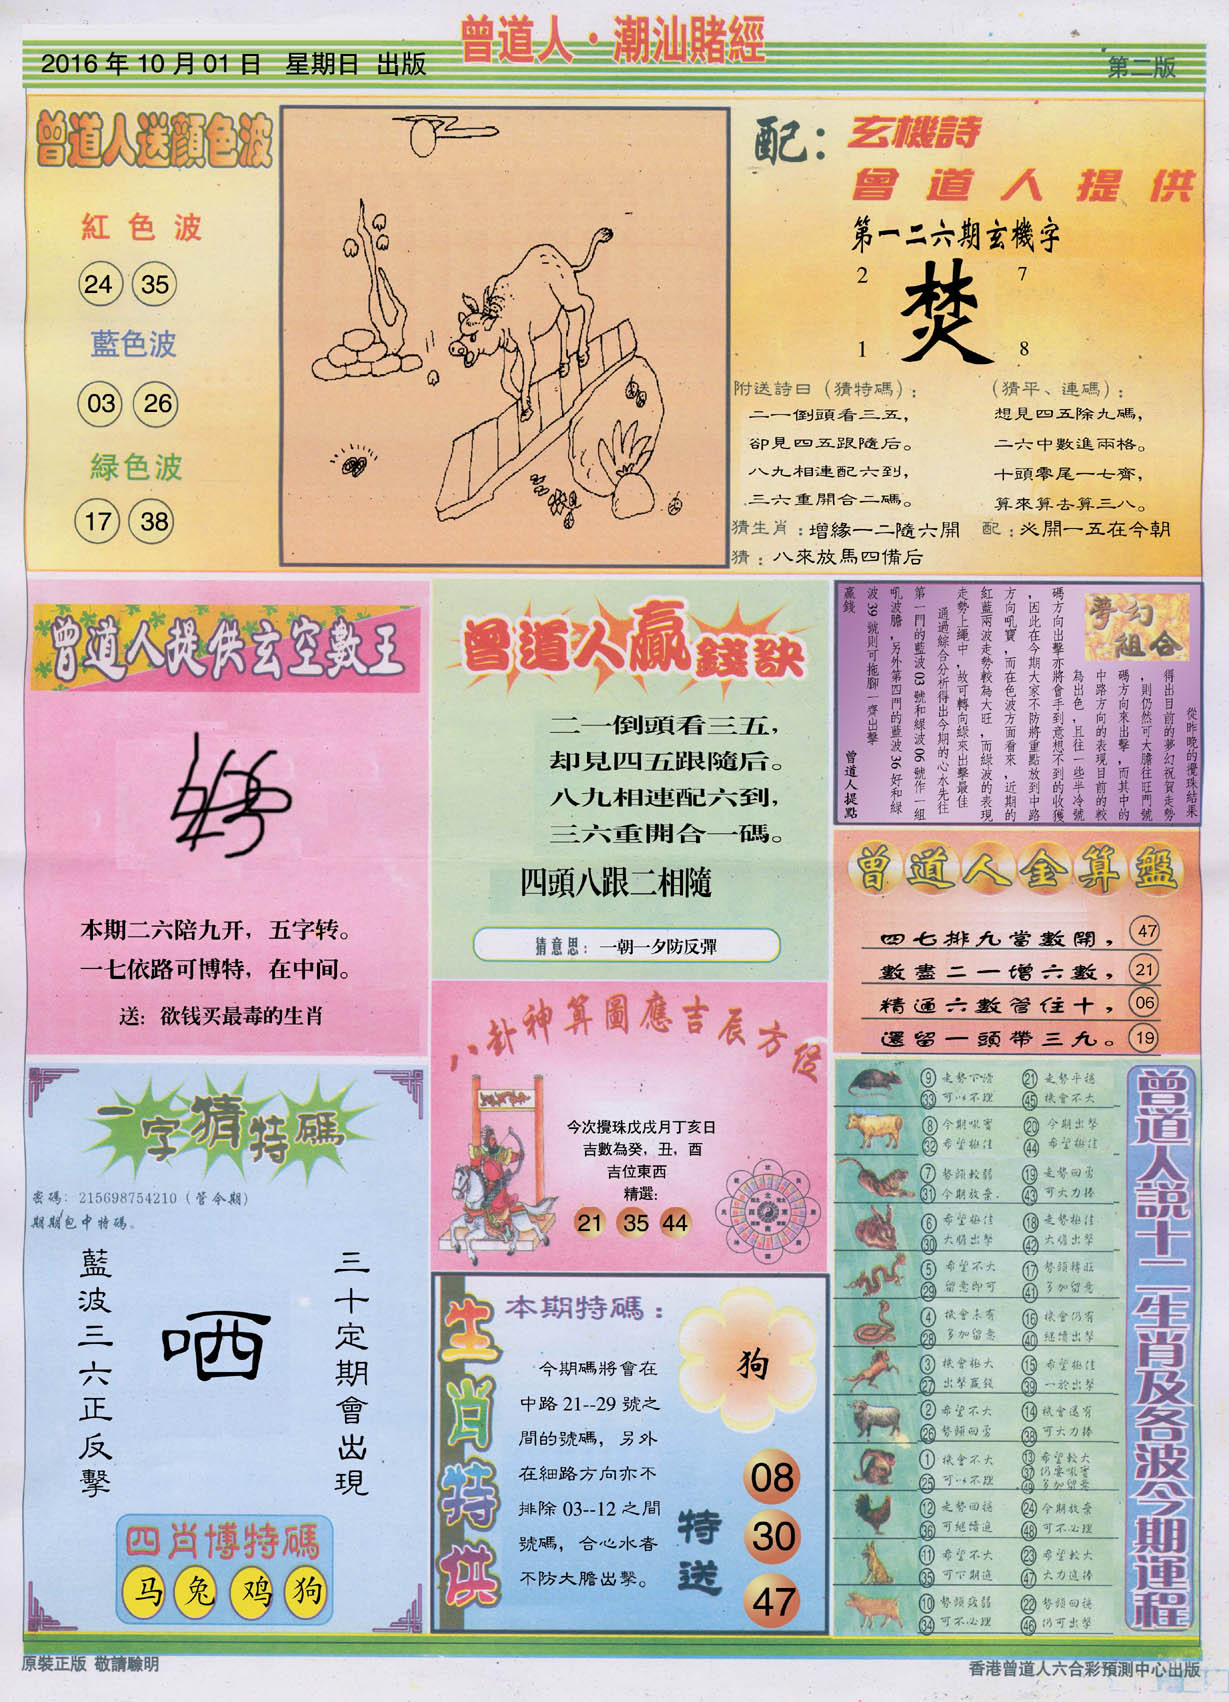 曾道人·潮汕賭經
2016 年 10 月 01 日 星期日 出版
第二版
曾道人送顏色波
紅色波
24 35
藍色波
03 26
綠色波
17 38
配：玄機詩
曾道人提供
第一二六期玄機字
2 7
焚
1 8
附送詩曰（猜特碼）：
二一倒頭看三五，
卻見四五跟隨后。
八九相連配六到，
三六重開合二碼。
（猜平、連碼）：
想見四五除九碼，
二六中數進兩格。
十頭零尾一七齊，
算來算去算三八。
猜生肖：增緣一二隨六開 配：必開一五在今朝
猜：八來放馬四備后
曾道人提供玄空數王
本期二六陪九开，五字转。
一七依路可博特，在中间。
送：欲钱买最毒的生肖
曾道人贏錢訣
二一倒頭看三五，
却見四五跟隨后。
八九相連配六到，
三六重開合一碼。
四頭八跟二相隨
猜意思：一朝一夕防反彈
夢幻組合
從昨晚的攪珠結果
得出目前的夢幻祝賀走勢
，則仍然可大膽往旺門號
碼方向來出擊，而其中的
中路方向的表現目前的較
為出色，且往一些半冷號
碼方向出擊亦將會手到意想不到的收獲
，因此在今期大家不防將重點放到中路
方向吼寶，而在色波方面看來，近期的
紅藍兩波走勢較為大旺，而綠波的表現
走勢上繩中，故可轉向綠來出擊最佳
通過綜合分析得出今期的心水先往
第一門的藍波 03 號和綠波 06 號作一組
吼波膽，另外第四門的藍波 36 好和綠
波 39 號則可拖腳一齊出擊
贏錢
曾道人提點
曾道人金算盤
四七排九當數開， 47
數盡二一增六數， 21
精通六數管住十， 06
還留一頭帶三九。 19
八卦神算圖應吉辰方位
今次攪珠戊戌月丁亥日
吉數為癸，丑，酉
吉位東西
精選：
21 35 44
一字猜特碼
密碼：215698754210（管今期）
期期包中特碼。
藍波三六正反擊
哂
三十定期會出現
四肖博特碼
马 兔 鸡 狗
生肖特供
本期特碼：
今期碼將會在
中路 21--29 號之
間的號碼，另外
在細路方向亦不
排除 03--12 之間
號碼，合心水者
不防大膽出擊。
狗
特送
08
30
47
曾道人説十二生肖及各波今期運程
9 走勢下滑 21 走勢平穩
33 可以不理 45 機會不大
8 今期吼寶 20 今期出擊
32 希望極佳 44 希望極佳
7 勢頭較弱 19 走勢回勇
31 今期放棄 43 可大力捧
6 希望極佳 18 走勢極佳
30 大膽出擊 42 大膽出擊
5 希望不大 17 勢頭轉旺
29 留意即可 41 多加留意
4 機會未有 16 機會仍有
28 多加留意 40 繼續出擊
3 機會極大 15 希望極佳
27 出擊贏錢 39 一於出擊
2 希望不大 14 機會還有
26 勢頭回勇 38 可大力捧
1 機會不大 13 希望較大
37 仍要吼寶
25 可以不理 49 多加留意
12 走勢回穩 24 今期放棄
36 可繼續追 48 可不必理
11 希望不大 23 希望較大
35 可下期追 47 大力追捧
10 勢頭疲弱 22 勢頭回穩
34 可不必理 46 仍可出擊
原裝正版 敬請驗明
香港曾道人六合彩預測中心出版